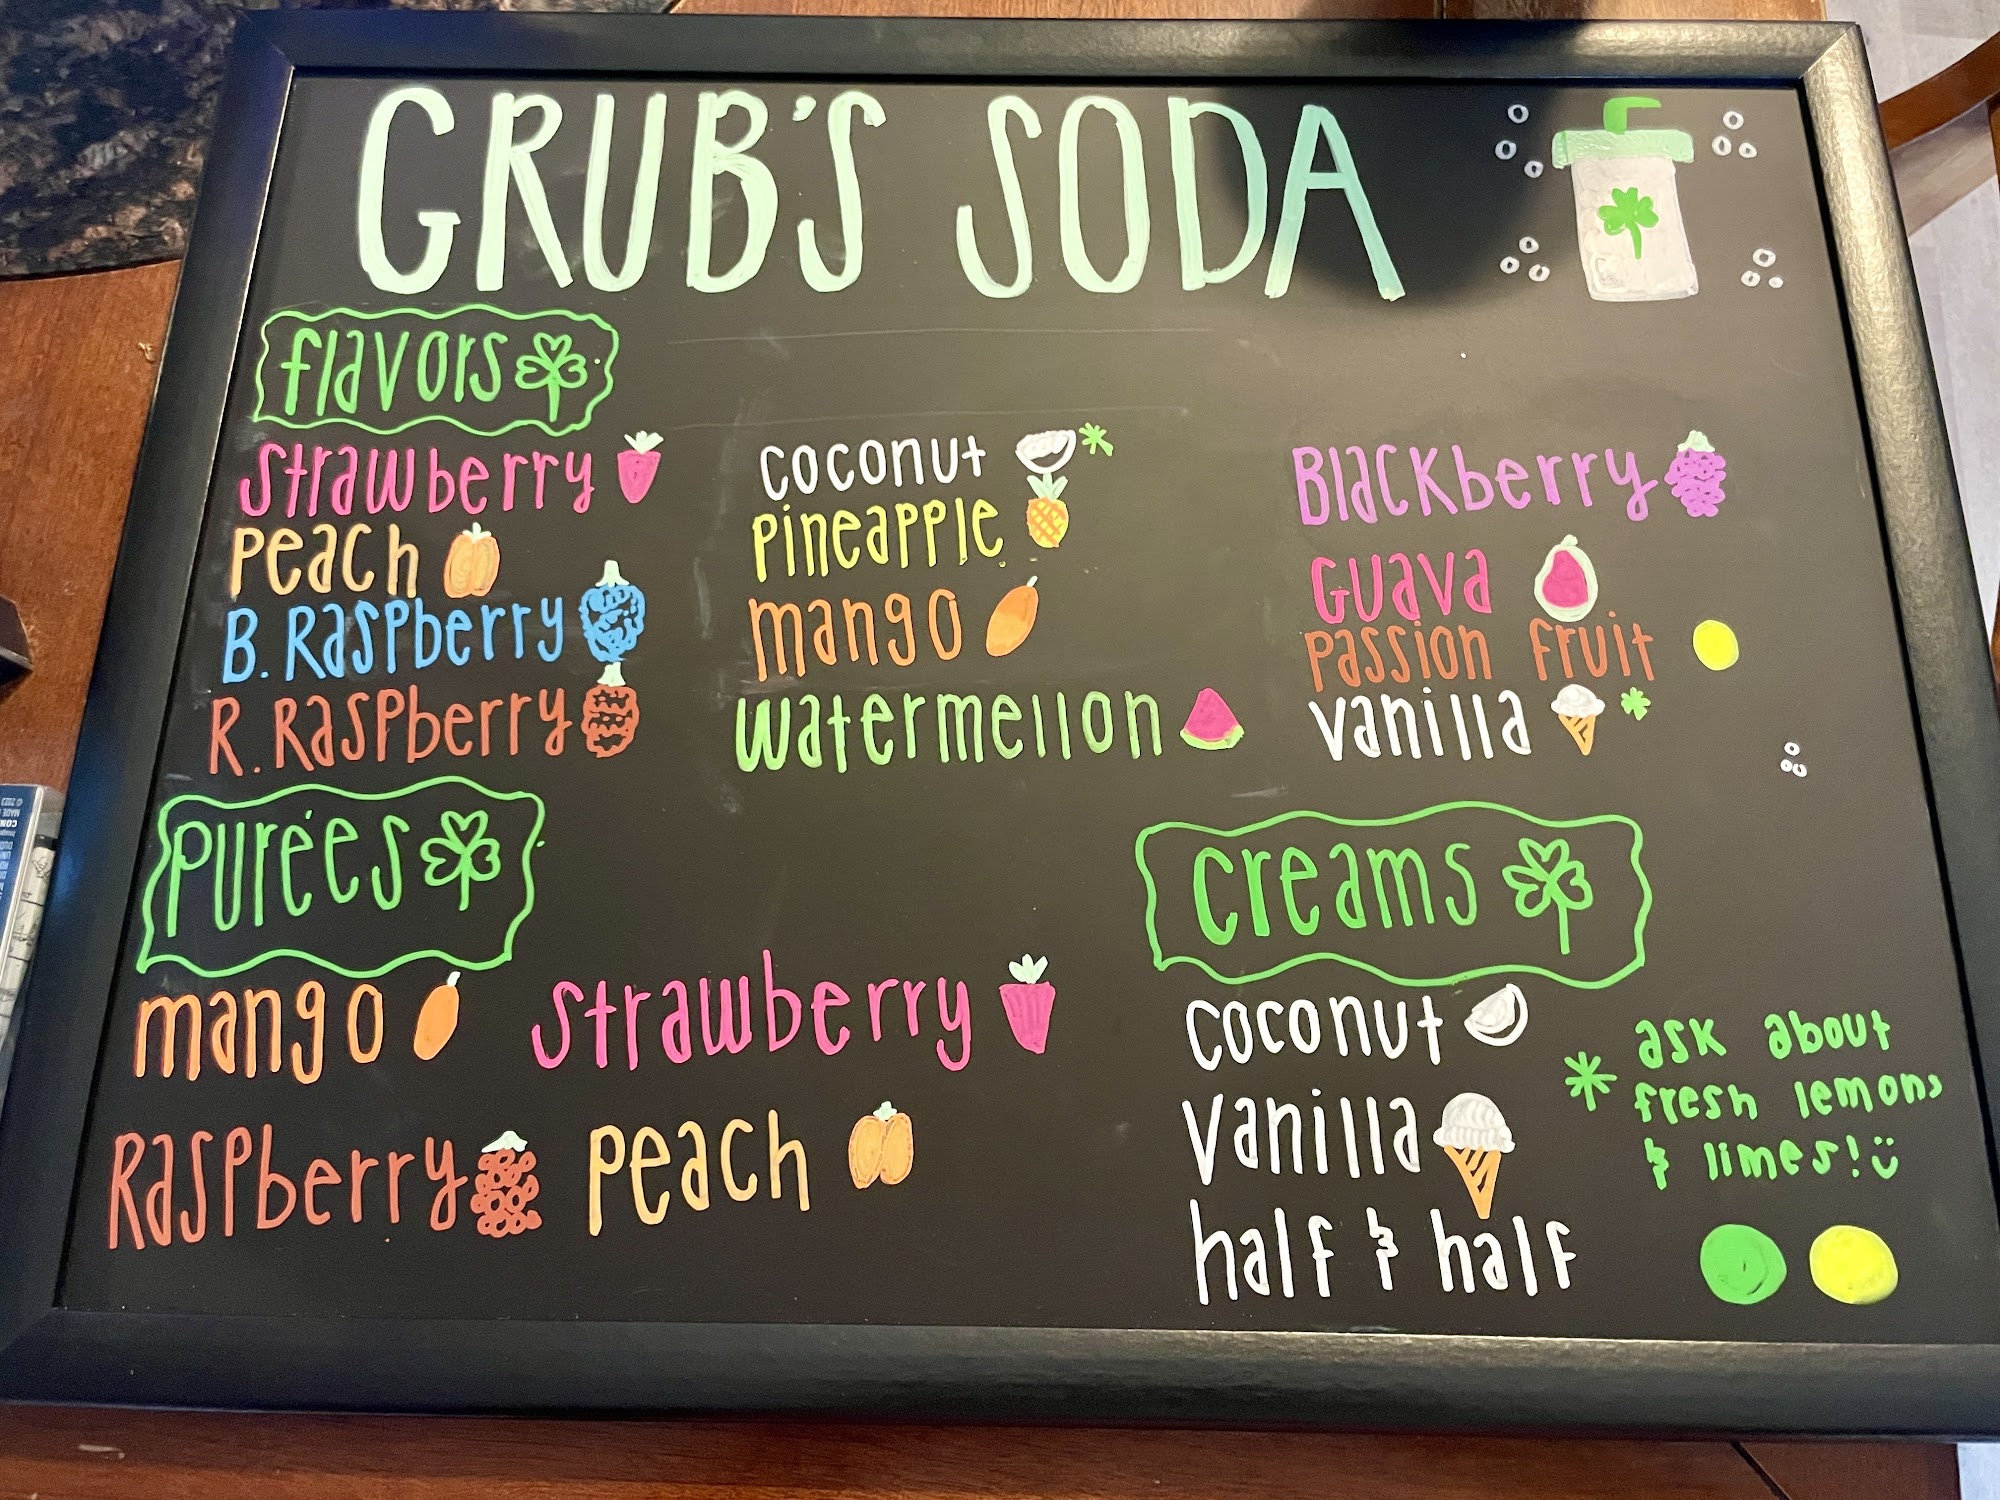 GRUB'S SODA
flavors
Strawberry
Peach
B. Raspberry
R. Raspberry
coconut *
Pineapple
mango
watermellon
Blackberry
Guava
Passion fruit
vanilla *
Purée's
mango
Strawberry
Raspberry
Peach
creams
coconut
vanilla
half & half
* ask about
fresh lemons
& limes!
© 2023